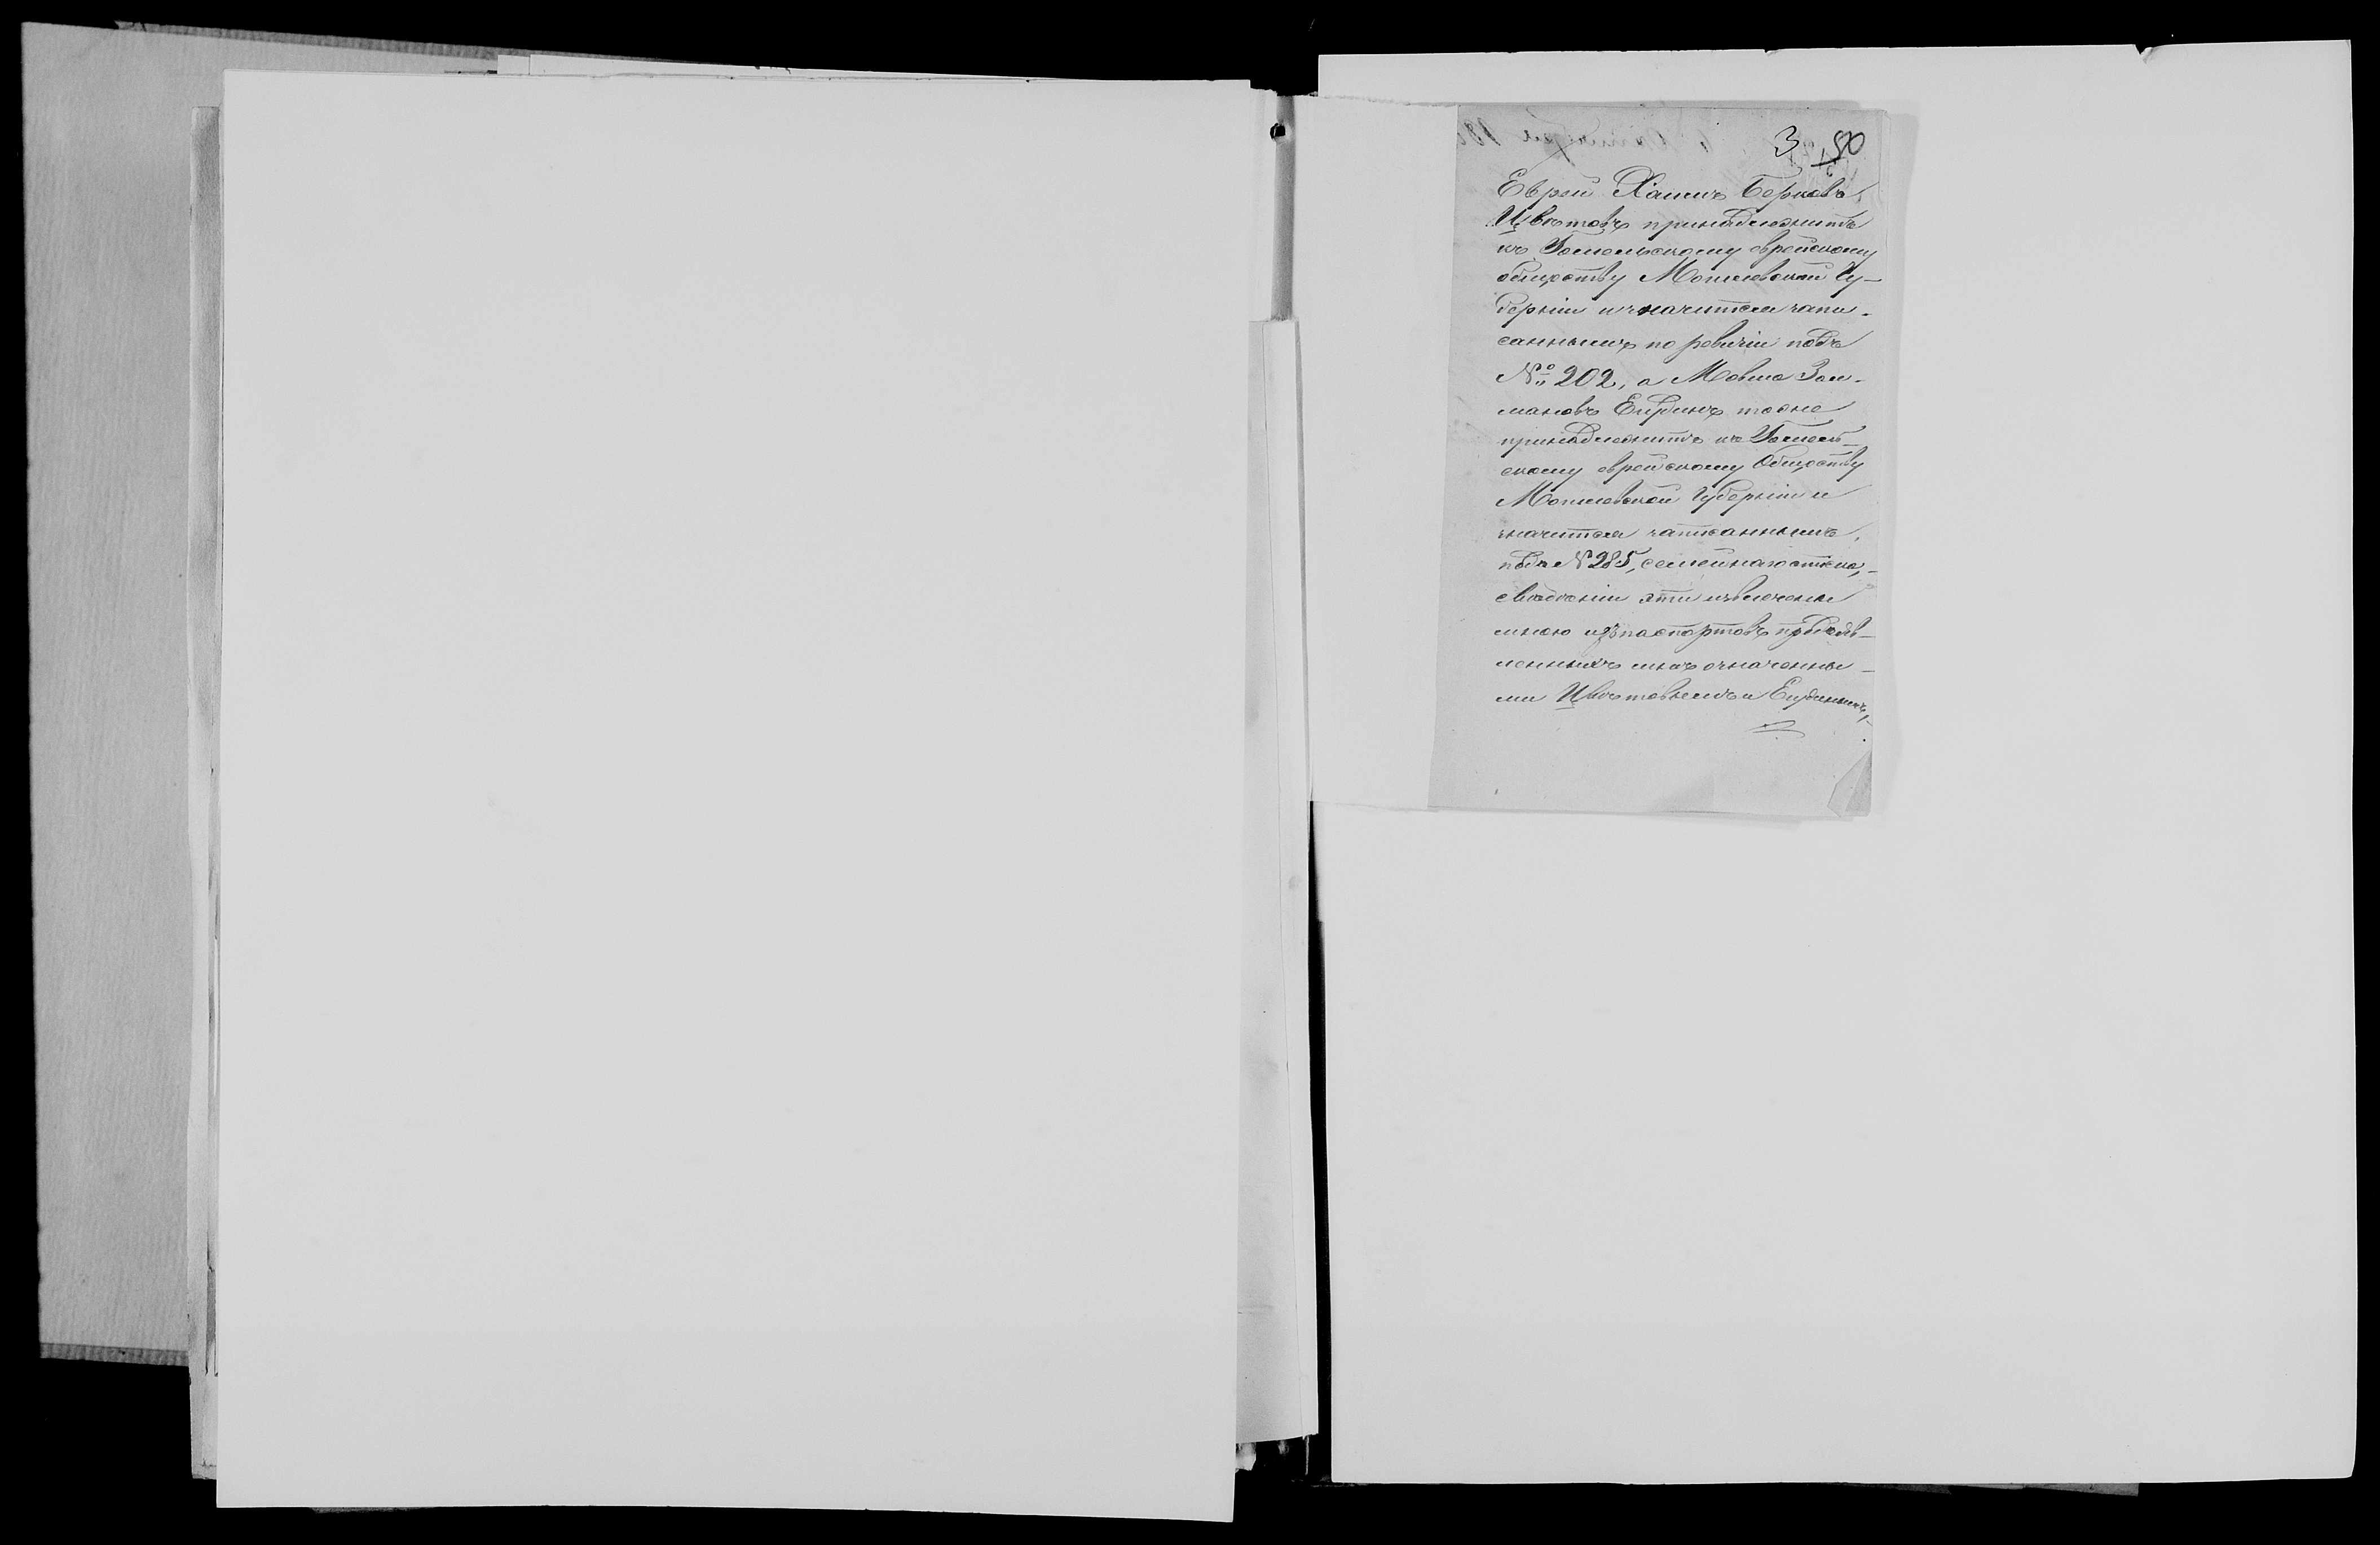 3 50
Еврей Хаимъ Берковъ
Цвѣтовъ принадлежитъ
къ Гомельскому еврейскому
обществу Могилевской Гу-
берніи и значится запи-
саннымъ по ревизіи подъ
№ 202, а Мовша Зал-
мановъ Гидинъ тоже
принадлежитъ къ Гомель-
скому еврейскому Обществу
Могилевской Губерніи и
значится записаннымъ
подъ № 285, семейнаго списка,
свѣденіи эти извлечены
мною изъ паспортовъ предъяв-
ленныхъ мнѣ означенны-
ми Цвѣтовымъ и